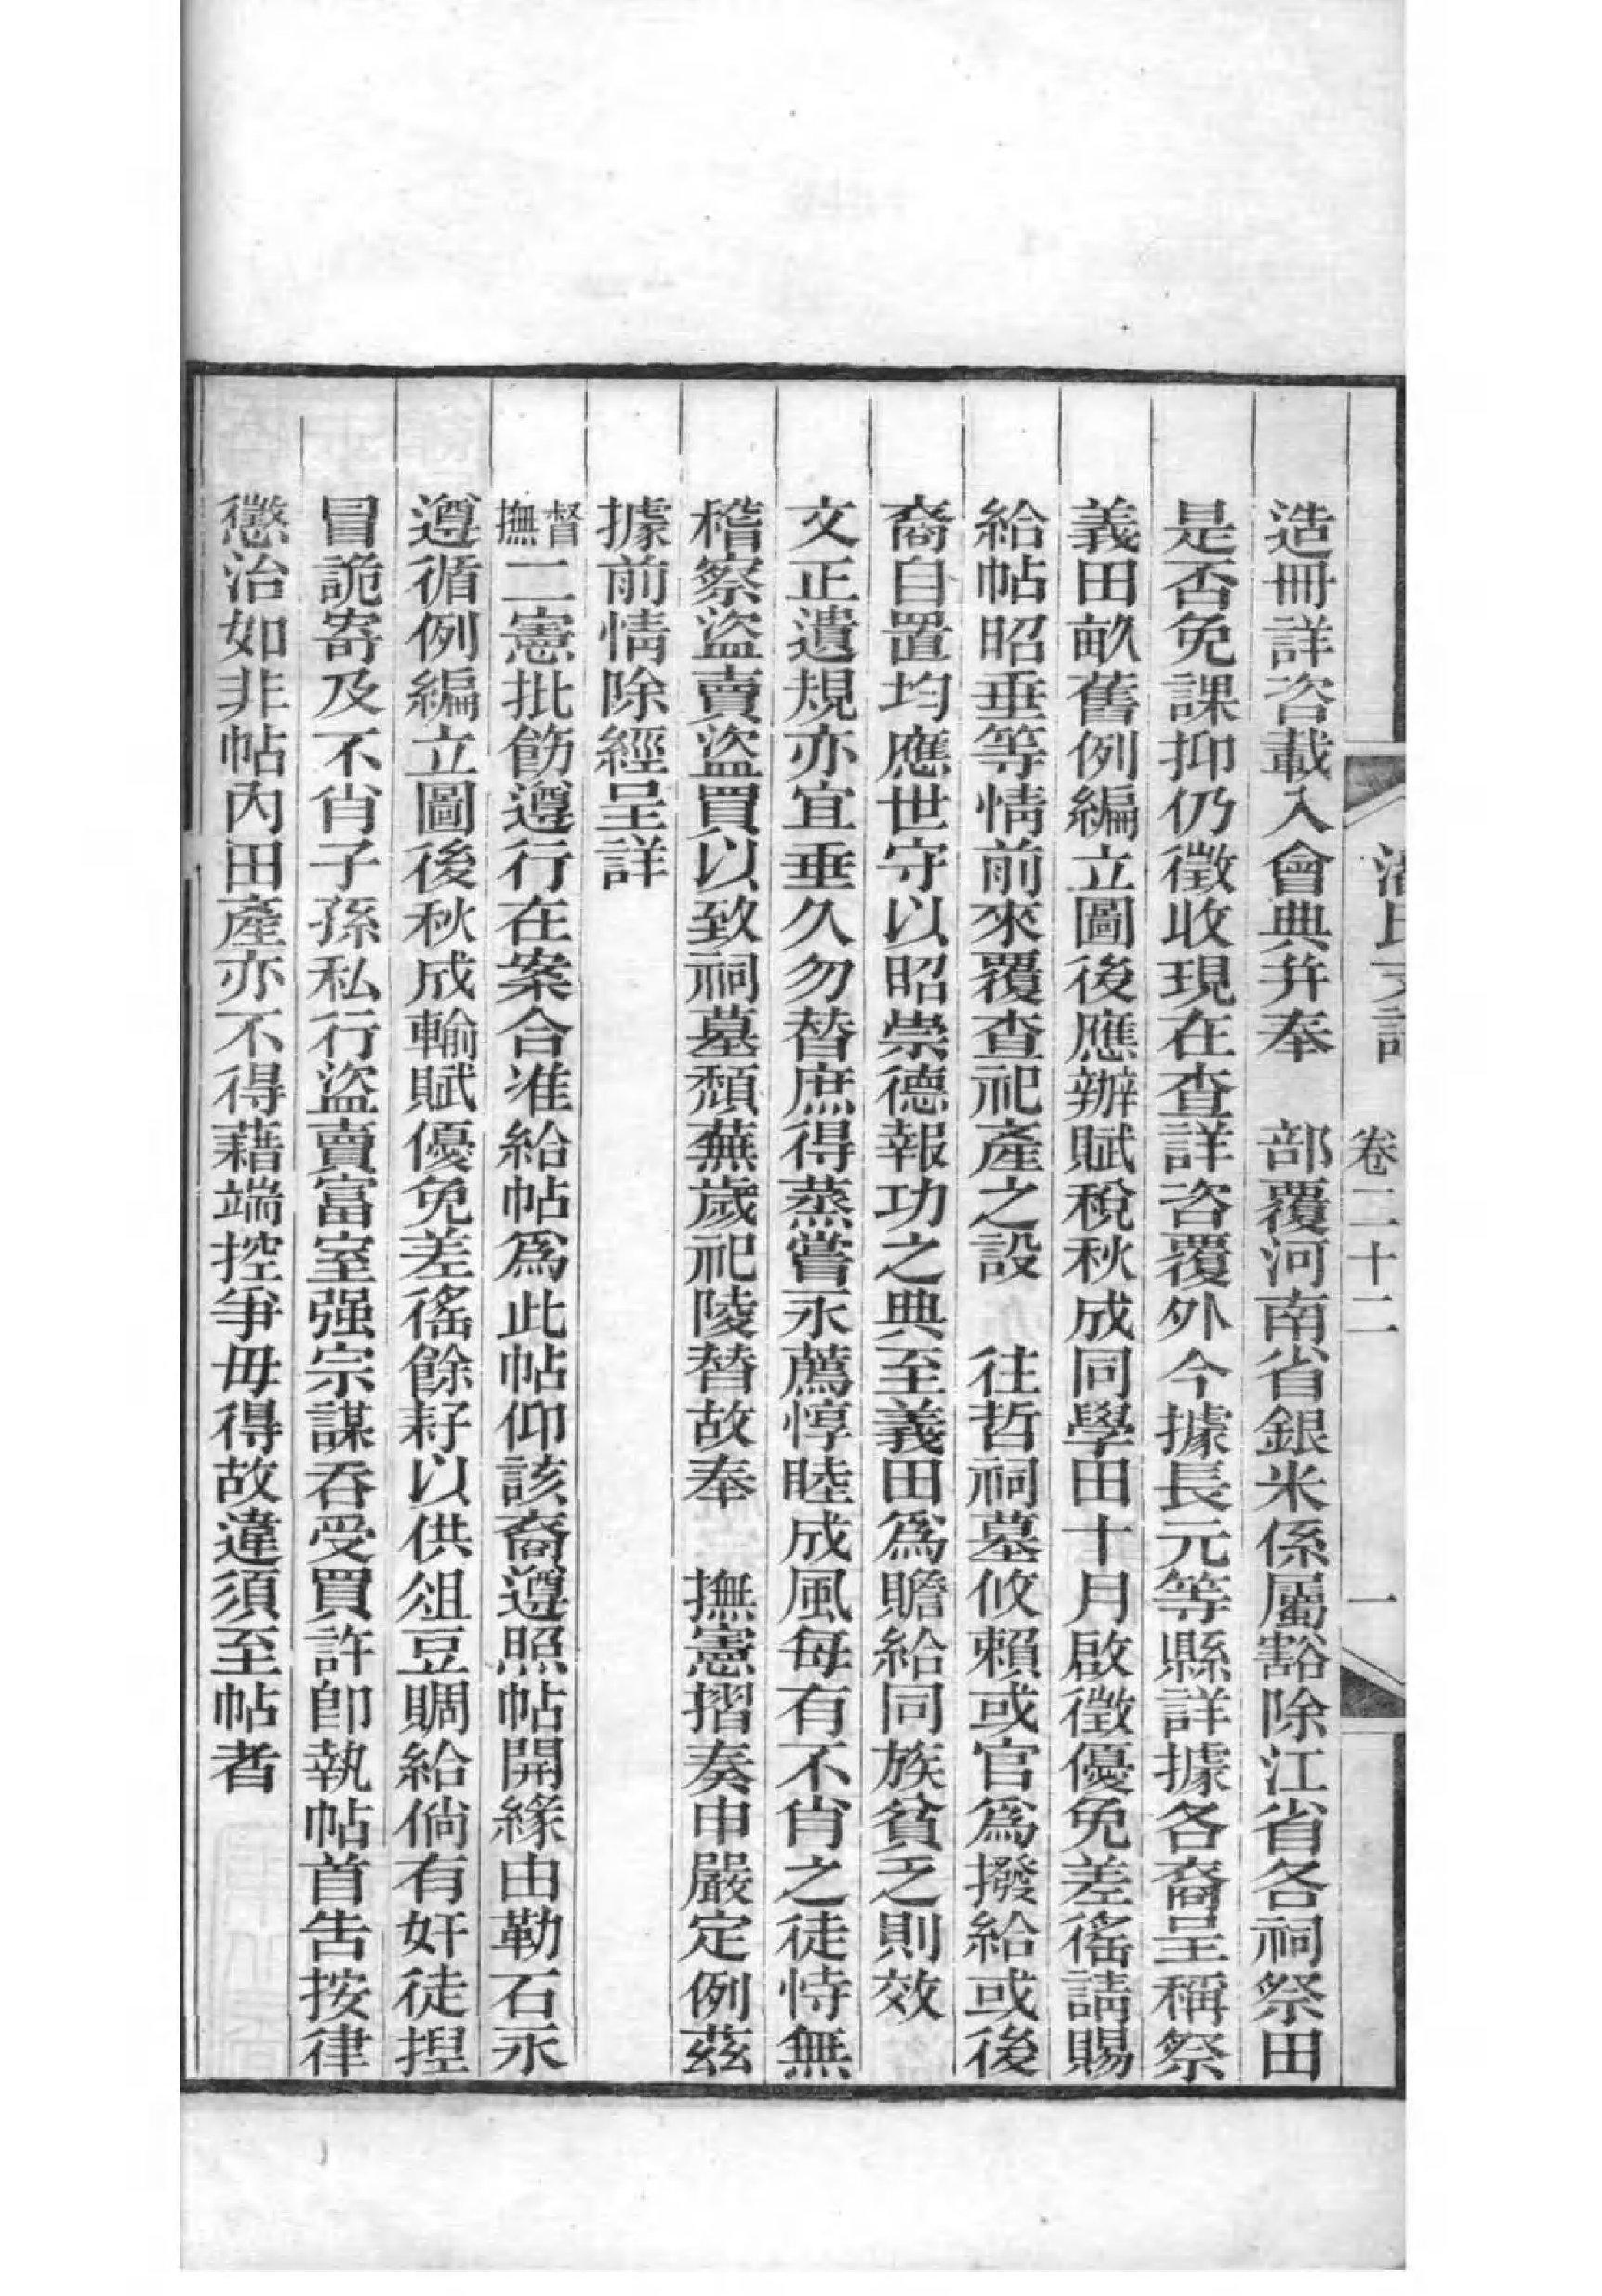 卷二十二　一
造冊詳咨載入會典幷奉　部覆河南省銀米係屬豁除江省各祠祭田
是否免課抑仍徵收現在查詳咨覆外今據長元等縣詳據各裔呈稱祭
義田畝舊例編立圖後應辦賦稅秋成同學田十月啟徵優免差徭請賜
給帖昭垂等情前來覆查祀產之設　往哲祠墓攸賴或官爲撥給或後
裔自置均應世守以昭崇德報功之典至義田爲贍給同族貧乏則效
文正遺規亦宜垂久勿替庶得蒸嘗永薦惇睦成風每有不肖之徒恃無
稽察盜賣盜買以致祠墓頹蕪歲祀陵替故奉　撫憲摺奏申嚴定例茲
據前情除經呈詳
督撫二憲批飭遵行在案合准給帖爲此帖仰該裔遵照帖開緣由勒石永
遵循例編立圖後秋成輸賦優免差徭餘耔以供俎豆賙給倘有奸徒揑
冒詭寄及不肖子孫私行盜賣富室强宗謀呑受買許卽執帖首告按律
懲治如非帖內田產亦不得藉端控爭毋得故違須至帖者